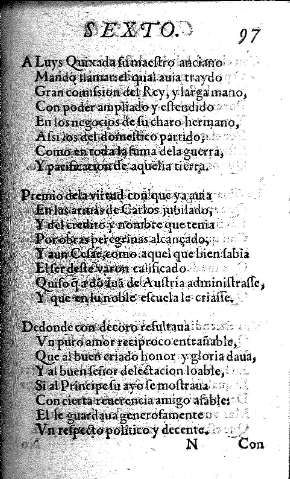 SEXTO. 97
A Luys Quixada su maestro anciano
Mandò llamar: el qual auia traydo
Gran comission del Rey, y larga mano,
Con poder ampliado y estendido
En los negocios de su charo hermano,
Assi los del domestico partido,
Como en toda la suma dela guerra,
Y pacificacion de aquella tierra.
Premio dela virtud con que ya auia
En las armas de Carlos jubilado,
Y del credito y nombre que tenia
Por obras peregrinas alcançado,
Y aun Cesar, como aquel que bien sabia
El ser deste varon calificado
Quiso q̃ a dõ Iuã de Austria administrasse,
Y que en su noble escuela le criasse.
Dedonde con decoro resultaua
Vn puro amor reciproco entrañable,
Que al buen criado honor y gloria daua,
Y al buen señor delectacion loable,
Si al Principe su ayo se mostraua
Con cierta reuerencia amigo afable:
El le guardaua generosamente
Vn respecto politico y decente.
N Con